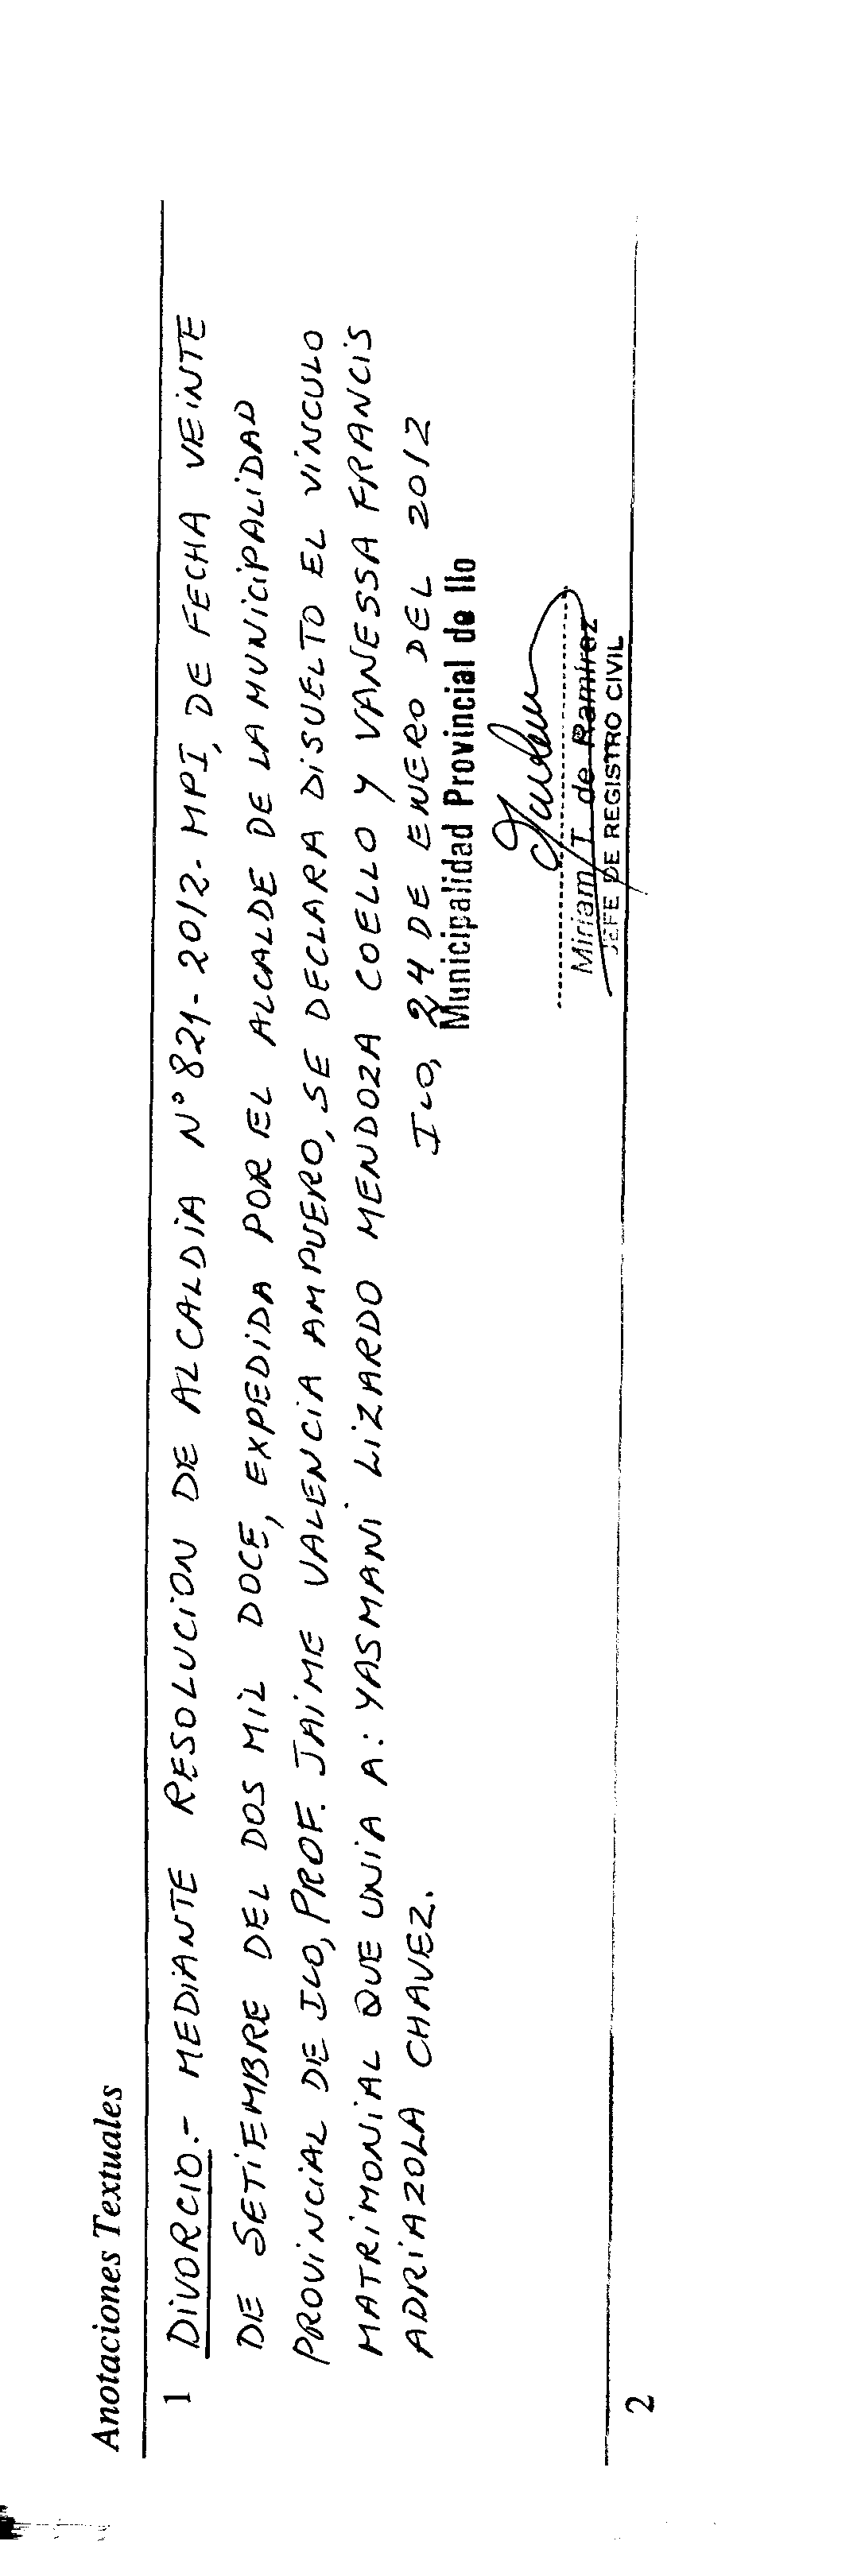 Anotaciones Textuales
1 DIVORCIO.- MEDIANTE RESOLUCION DE ALCALDIA N° 821-2012-MPI, DE FECHA VEINTE
DE SETIEMBRE DEL DOS MIL DOCE, EXPEDIDA POR EL ALCALDE DE LA MUNICIPALIDAD
PROVINCIAL DE ILO, PROF. JAIME VALENCIA AMPUERO, SE DECLARA DISUELTO EL VINCULO
MATRIMONIAL QUE UNIA A: YASMANI LIZARDO MENDOZA COELLO Y VANESSA FRANCIS
ADRIAZOLA CHAVEZ.
ILO, 24 DE ENERO DEL 2012
Municipalidad Provincial de Ilo
Miriam T. de Ramírez
JEFE DE REGISTRO CIVIL
2